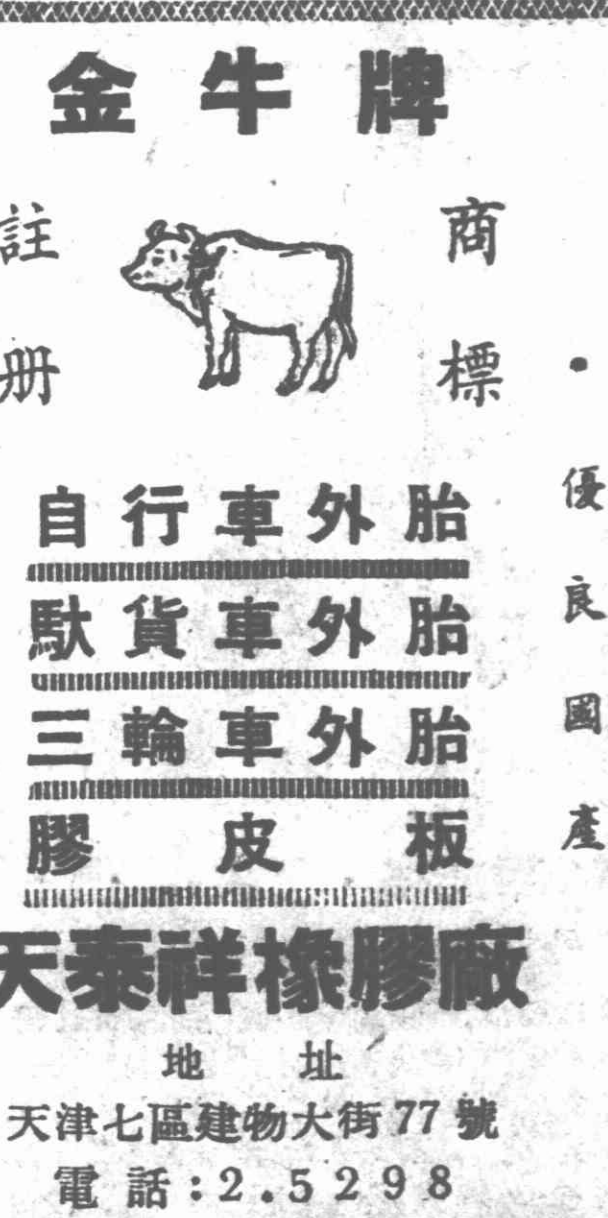 金牛牌
註冊
商標
·優良國產
自行車外胎
馱貨車外胎
三輪車外胎
膠皮板
天泰祥橡膠廠
地址
天津七區建物大街77號
電話:2.5298